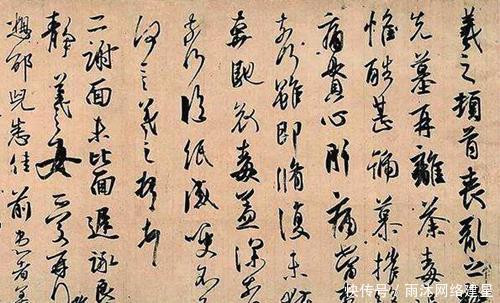 羲之頓首喪亂之
先墓再離荼毒
惟酷甚號慕摧
痛貫心肝痛當
奈何雖即脩復未
奔馳哀毒益深奈
奈何臨紙感哽不
何言羲之頓首
二謝面未比面遲詠良
靜羲之女愛再拜
想邵兒悉佳前患者善
快传号/雨沐网络建星